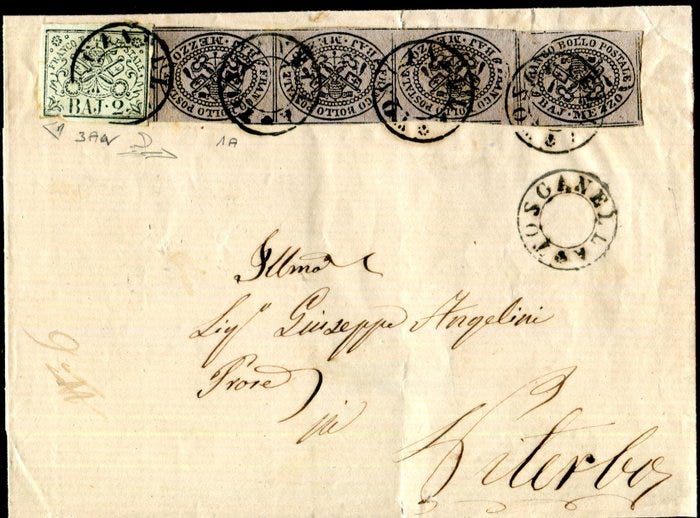 FRANCO BOLLO POSTALE
BAJ. 2.
FRANCO BOLLO POSTALE BAJ. MEZZO
FRANCO BOLLO POSTALE BAJ. MEZZO
FRANCO BOLLO POSTALE BAJ. MEZZO
FRANCO BOLLO POSTALE BAJ. MEZZO
1A
TOSCANELLA
Illmo
Sigr Giuseppe Angelini
in
Viterbo